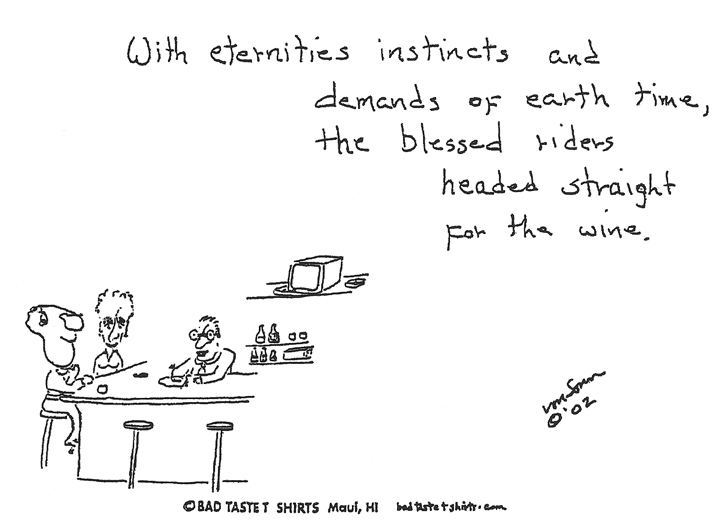 With eternities instincts and
demands of earth time,
the blessed riders
headed straight
for the wine.
©'02
©BAD TASTE T SHIRTS Maui, HI badtastetshirts.com